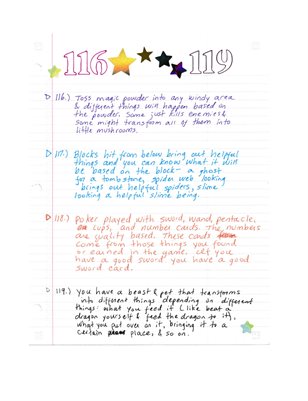 116 119
116.) Toss magic powder into any windy area
& different things will happen based on
the powder. Some just kills enemies &
some might transform all of them into
little mushrooms.
117.) Blocks hit from below bring out helpful
things and you can know what it will
be based on the block - a ghost
for a tombstone, spider web looking
brings out helpful spiders, slime
looking a helpful slime being.
118.) Poker played with sword, wand, pentacle,
cups, and number cards. The numbers
are quality based. These cards
come from those things you found
or earned in the game. Let you
have a good sword you have a good
sword card.
119.) you have a beast & pet that transforms
into different things depending on different
things what you feed it (like beat a
dragon yourself & feed the dragon to it),
what you put over on it, bringing it to a
certain place, & so on.